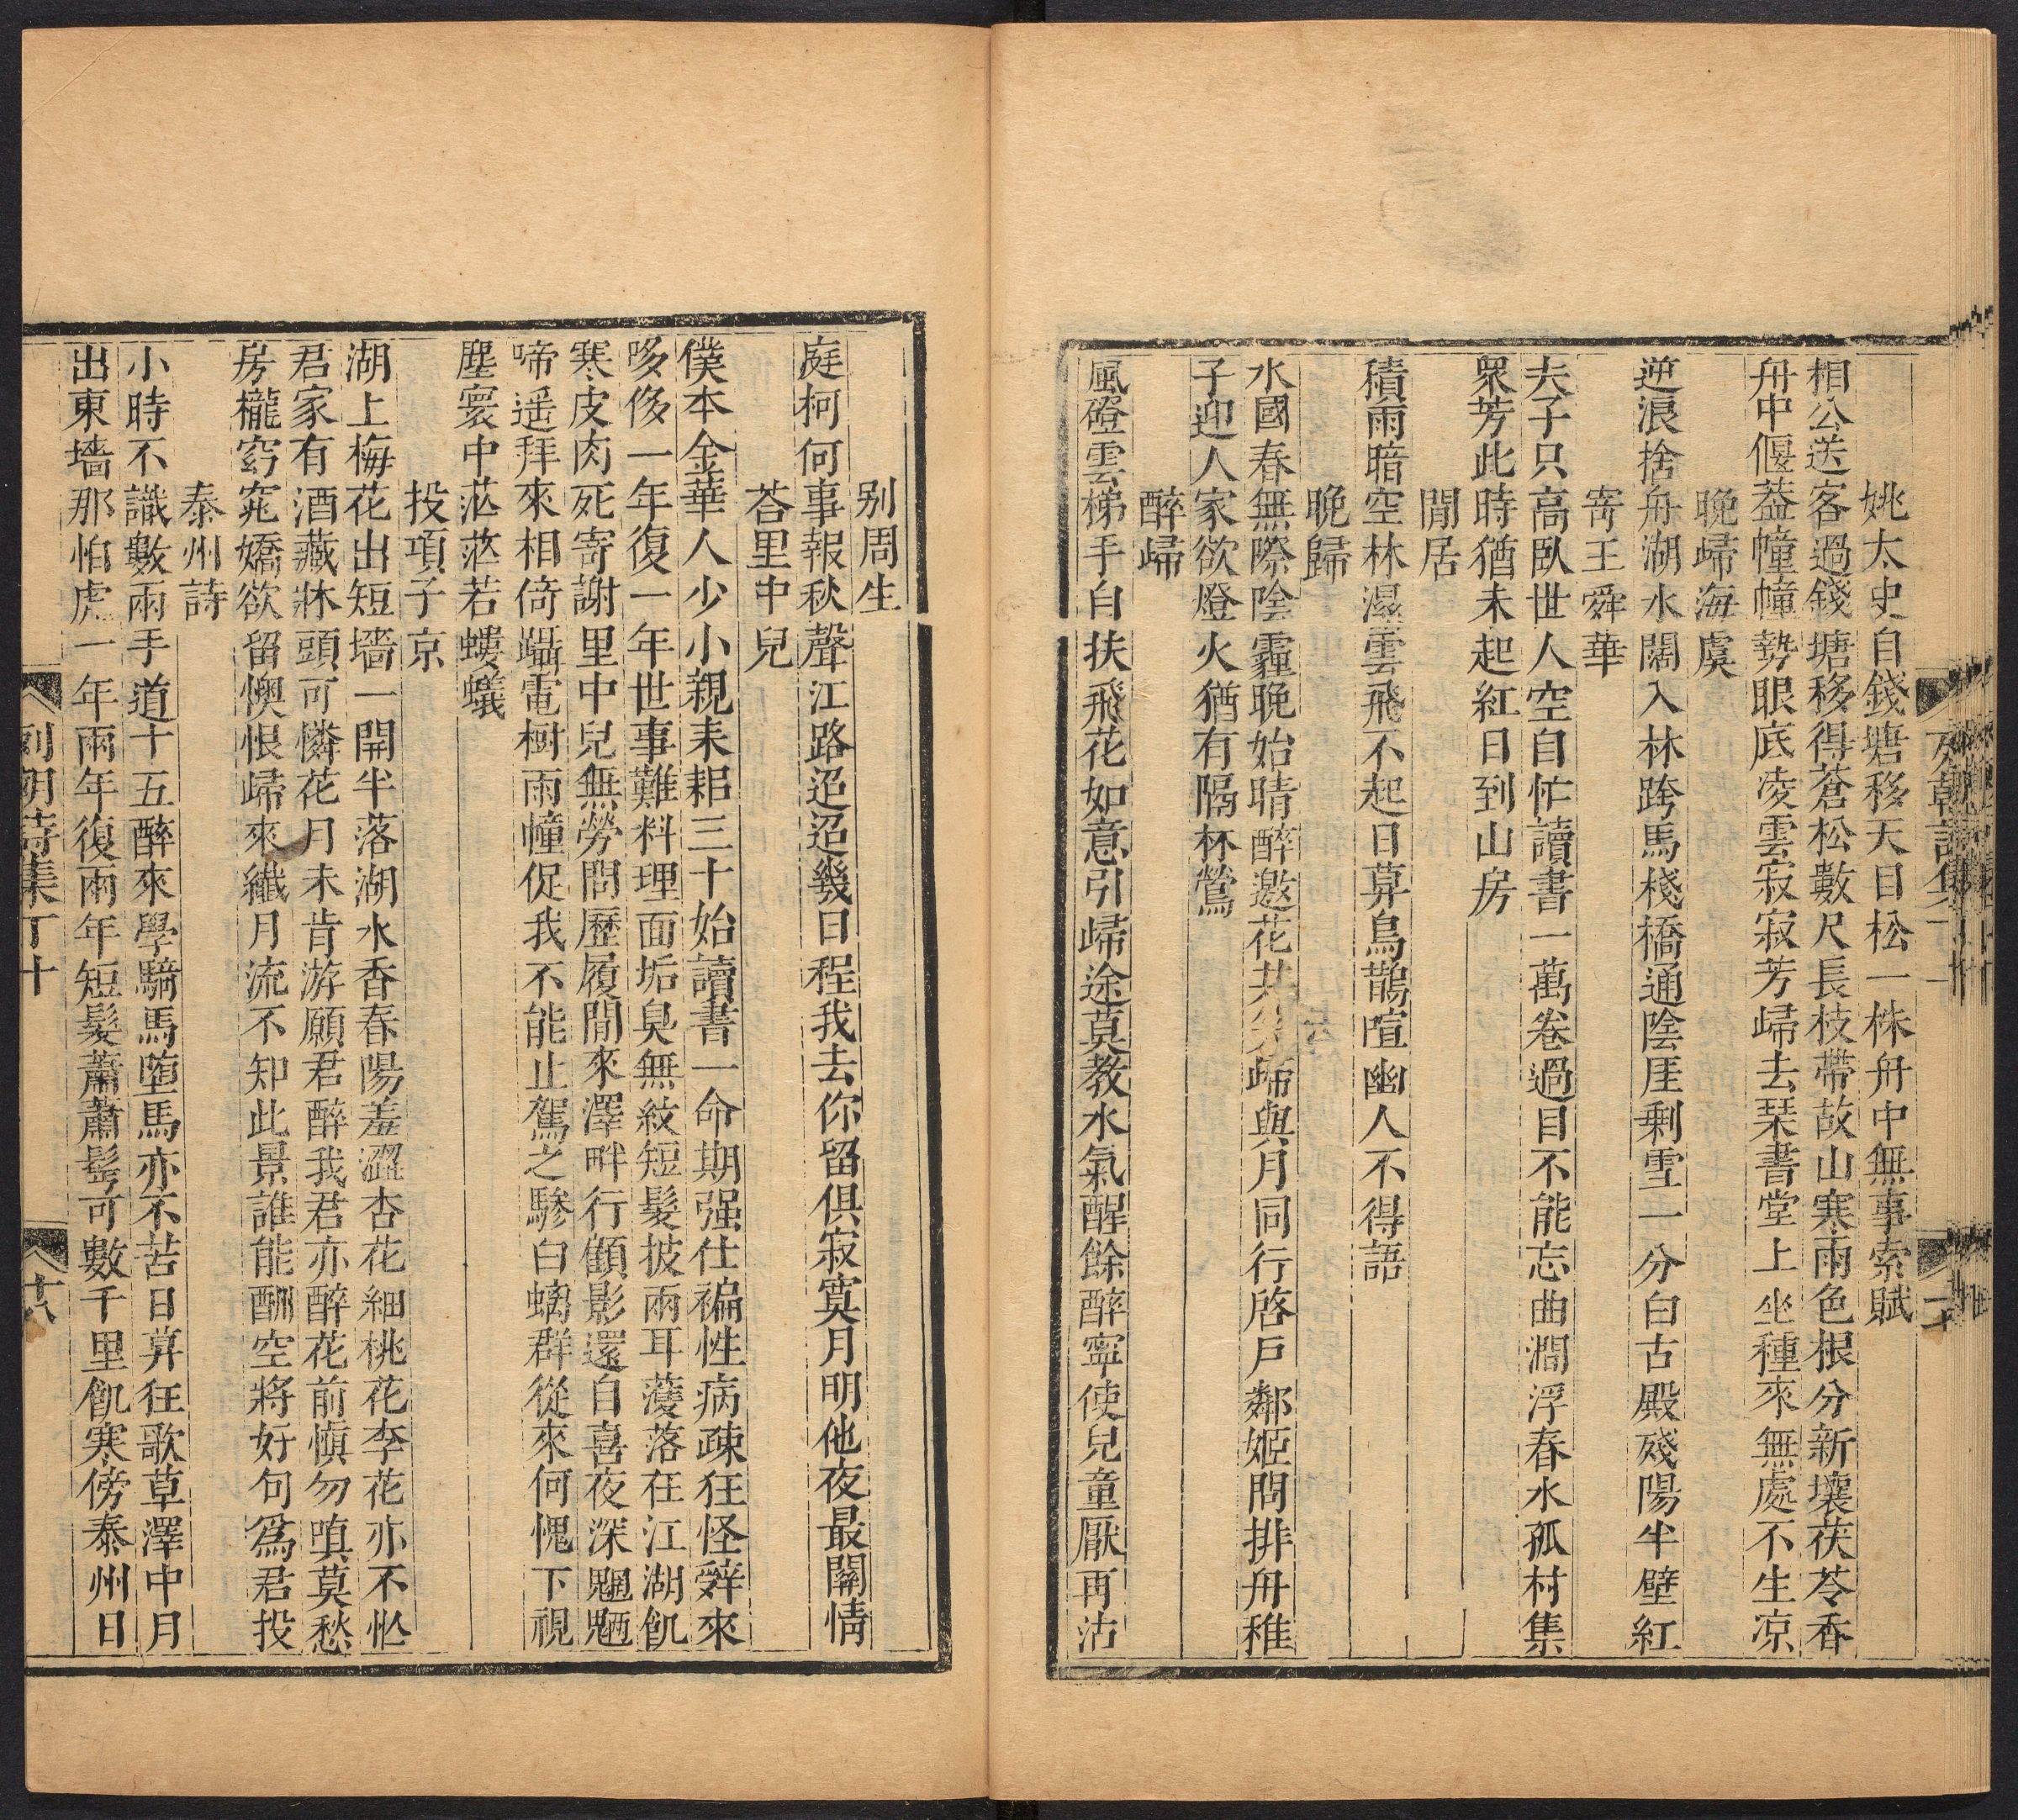 姚太史自錢塘移天目松一株舟中無事索賦
相公送客過錢塘移得蒼松數尺長枝帶故山寒雨色根分新壤茯苓香
舟中偃葢幢幢勢眼底凌雲寂寂芳歸去琹書堂上坐種來無處不生凉
晚歸海虞
逆浪捨舟湖水闊入林跨馬棧橋通陰厓剩雪一分白古殿殘陽半壁紅
寄王舜華
夫子只高臥世人空自忙讀書一萬卷過目不能忘曲澗浮春水孤村集
衆芳此時猶未起紅日到山房
閒居
積雨暗空林濕雲飛不起日暮鳥鵲喧幽人不得語
晚歸
水國春無際陰霾晚始晴醉邀花共 歸與月同行啓戶鄰姬問排舟稚
子迎人家欲燈火猶有隔林鶯
醉歸
風磴雲梯手自扶飛花如意引歸途莫教水氣醒餘醉寧使兒童厭再沽
别周生
庭柯何事報秋聲江路迢迢幾日程我去你留俱寂寞月明他夜最關情
荅里中兒
僕本金華人少小親耒耜三十始讀書一命期强仕褊性病疎狂怪辤來
哆侈一年復一年世事難料理面垢臭無紋短髮披兩耳濩落在江湖飢
寒皮肉死寄謝里中兒無勞問歷履閒來澤畔行顧影還自喜夜深魍魎
啼遥拜來相倚躡電樹雨幢促我不能止駕之驂白螭群從來何愧下視
塵寰中茫茫若螻蟻
投項子京
湖上梅花出短墻一開半落湖水香春陽羞澀杏花細桃花李花亦不忙
君家有酒藏牀頭可憐花月未肯游願君醉我君亦醉花前愼勿嗔莫愁
房櫳窈窕嬌欲留懊恨歸來纖月流不知此景誰能酬空將好句爲君投
泰州詩
小時不識數兩手道十五醉來學騎馬墮馬亦不苦日暮狂歌草澤中月
出東墻那怕虎一年兩年復兩年短髮蕭蕭髩可數千里飢寒傍泰州日
列朝詩集丁十
十八